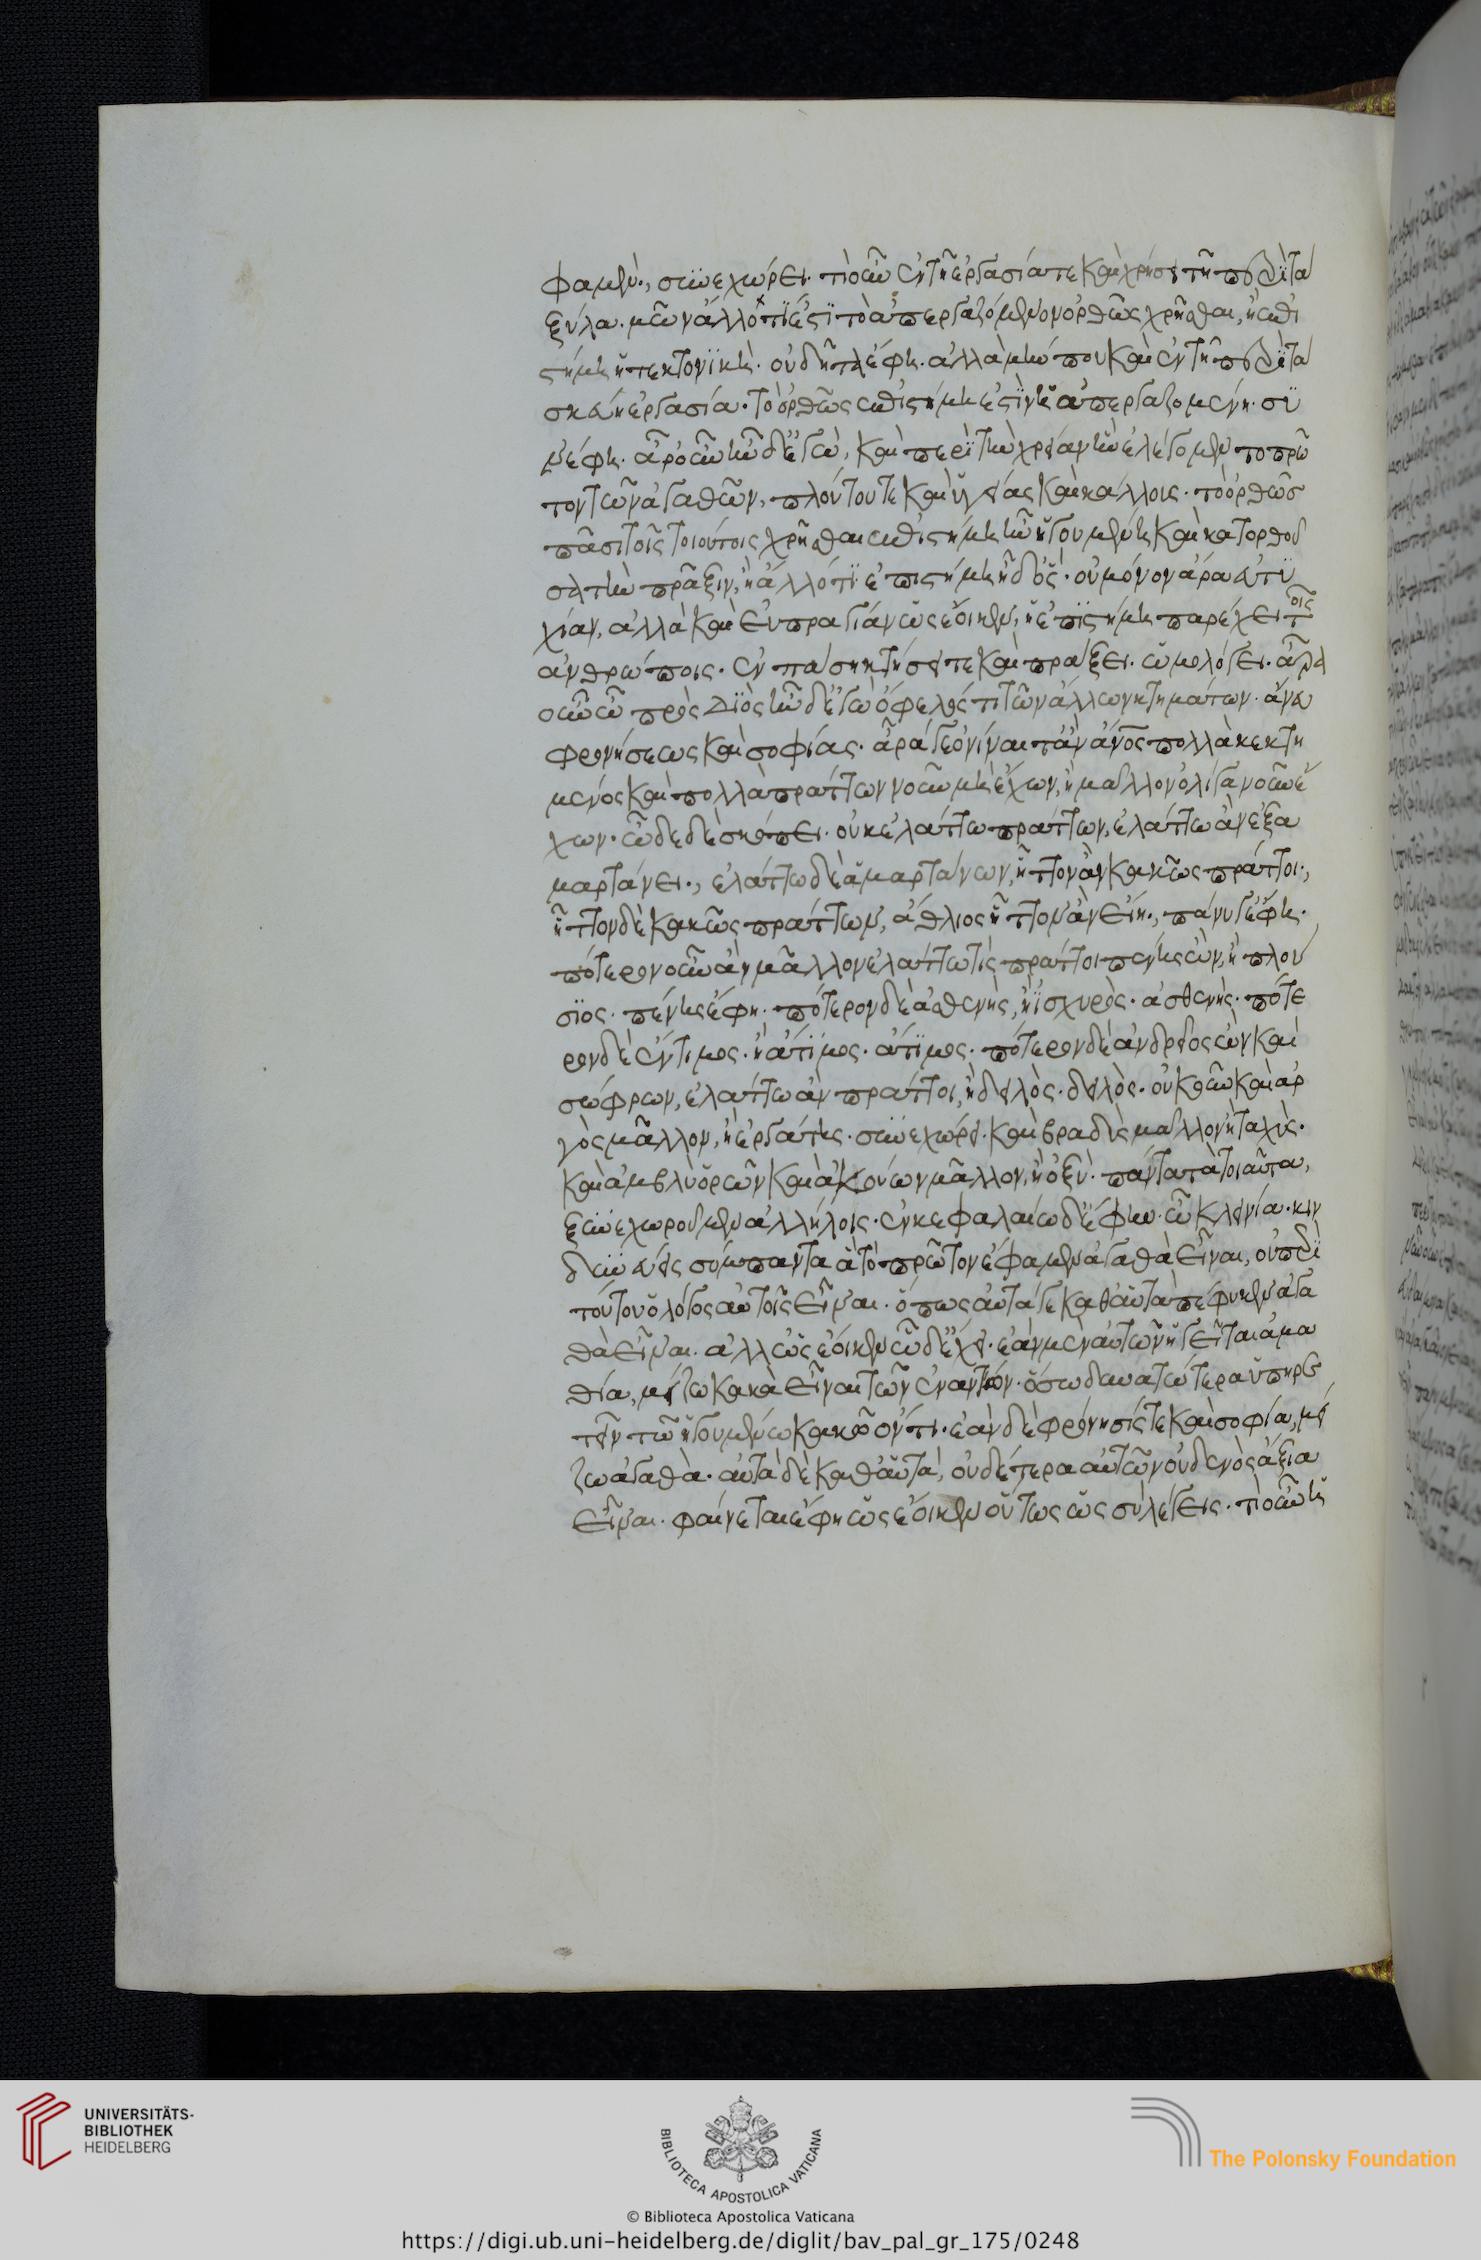 φαμὲν., συνεχώρει. τὶ οὖν ἐν τῆ ἐργασία τε καὶ χρήσει τῆ περὶ τὰ
ξύλα. μῶν ἄλλό τί ἐστὶ τὸ ἀπεργαζόμενον ὀρθῶς χρῆσθαι, ἢ ἐπι
στήμη ἡ τεκτονϊκή. οὐ δῆτα ἔφη. ἀλλὰ μήν που καὶ ἐν τῆ περὶ τὰ
σκεύη ἐργασία. τὸ ὀρθῶς ἐπιστήμη ἐστὶν ἡ ἀπεργαζομένη. συ
νέφη. ἆρ' οὖν ἦν δ' ἐγὼ, καὶ περὶ τὴν χρείαν ἣν ἐλέγομεν τοπρῶ
τον τῶν ἀγαθῶν, πλούτου τε καὶ ὑγείας καὶ κάλλους. τὸ ὀρθῶς
πᾶσι τοῖς τοιούτοις χρῆσθαι ἐπιστήμη ἦν ἡγουμένη καὶ κατορθοῦ
σα τὴν πρᾶξιν, ἢ ἄλλό τι ἐπιστήμη ἦ δ' ὅς. οὐ μόνον ἄρα εὐτυ
χίαν, ἀλλὰ καὶ εὐπραγίαν ὡς ἔοικεν, ἡ ἐπιστήμη παρέχει τοῖς
ἀνθρώποις. ἐν πάση κτήσει τε καὶ πράξει. ὡμολόγει. ἆρ'
οὖν ὦ πρὸς Διὸς ἦν δ' ἐγὼ ὄφελός τι τῶν ἄλλων κτημάτων. ἄνευ
φρονήσεως καὶ σοφίας. ἆρά γε ὀνίναιτ' ἂν ἄνος πολλὰ κεκτη
μένος καὶ πολλὰ πράττων νοῦν μὴ ἔχων, ἢ μᾶλλον ὀλίγα νοῦν ἔ
χων. ὧδε δὲ σκόπει. οὐκ ἐλάττω πράττων, ἐλάττω ἂν ἐξα
μαρτάνει., ἐλάττω δὲ ἁμαρτάνων, ἧττον ἂν κακῶς πράττοι.,
ἧττον δὲ κακῶς πράττων, ἄθλιος ἧττον ἂν εἴη., πάνυ γ' ἔφη.
πότερον οὖν ἂν μᾶλλον ἐλάττω τὶς πράττοι πένης ὢν, ἢ πλού
σϊος. πένης ἔφη. πότερον δὲ ἀσθενὴς, ἢ ἰσχυρὸς. ἀσθενὴς. πότε
ρον δὲ ἔντιμος. ἢ ἄτϊμος. ἄτϊμος. πότερον δὲ ἀνδρεῖος ὢν καὶ
σώφρων, ἐλάττω ἂν πράττοι, ἢ δειλὸς. δειλὸς. οὐκοῦν καὶ ἀρ
γὸς μᾶλλον, ἢ ἐργάτης. συνεχώρει. καὶ βραδὺς μᾶλλον ἢ ταχὺς.
καὶ ἀμβλὺ ὁρῶν καὶ ἀκούων μᾶλλον, ἢ ὀξὺ. πάντα τὰ τοιαῦτα,
ξυνεχωροῦμεν ἀλλήλοις. ἐν κεφαλαίω δ' ἔφην. ὦ κλεινία. κιν
δυνεύει σύμπαντα ἃ τὸ πρῶτον ἔφαμεν ἀγαθὰ εἶναι, οὐ περὶ
τούτου ὁ λόγος αὐτοῖς εἶναι. ὅπως αὐτά γε καθ' αὑτὰ πέφυκεν ἀγα
θὰ εἶναι. ἀλλ' ὡς ἔοικεν ὧδ' ἔχει. ἐὰν μὲν αὐτῶν ἡγεῖται ἀμα
θία, μείζω κακὰ εἶναι τῶν ἐναντίων. ὅσω δυνατώτερα ὑπηρε
τεῖν τῶ ἡγουμένω κακῶ ὄντι. ἐὰν δὲ φρόνησίς τε καὶ σοφία, μεί
ζω ἀγαθὰ. αὐτὰ δὲ καθ' αὑτὰ, οὐδέτερα αὐτῶν οὐδενὸς ἄξια
εἶναι. φαίνεται ἔφη ὡς ἔοικεν οὕτως ὡς σὺ λέγεις. τὶ οὖν ἡ
UNIVERSITÄTS-
BIBLIOTHEK
HEIDELBERG
BIBLIOTECA APOSTOLICA VATICANA
The Polonsky Foundation
© Biblioteca Apostolica Vaticana
https://digi.ub.uni-heidelberg.de/diglit/bav_pal_gr_175/0248